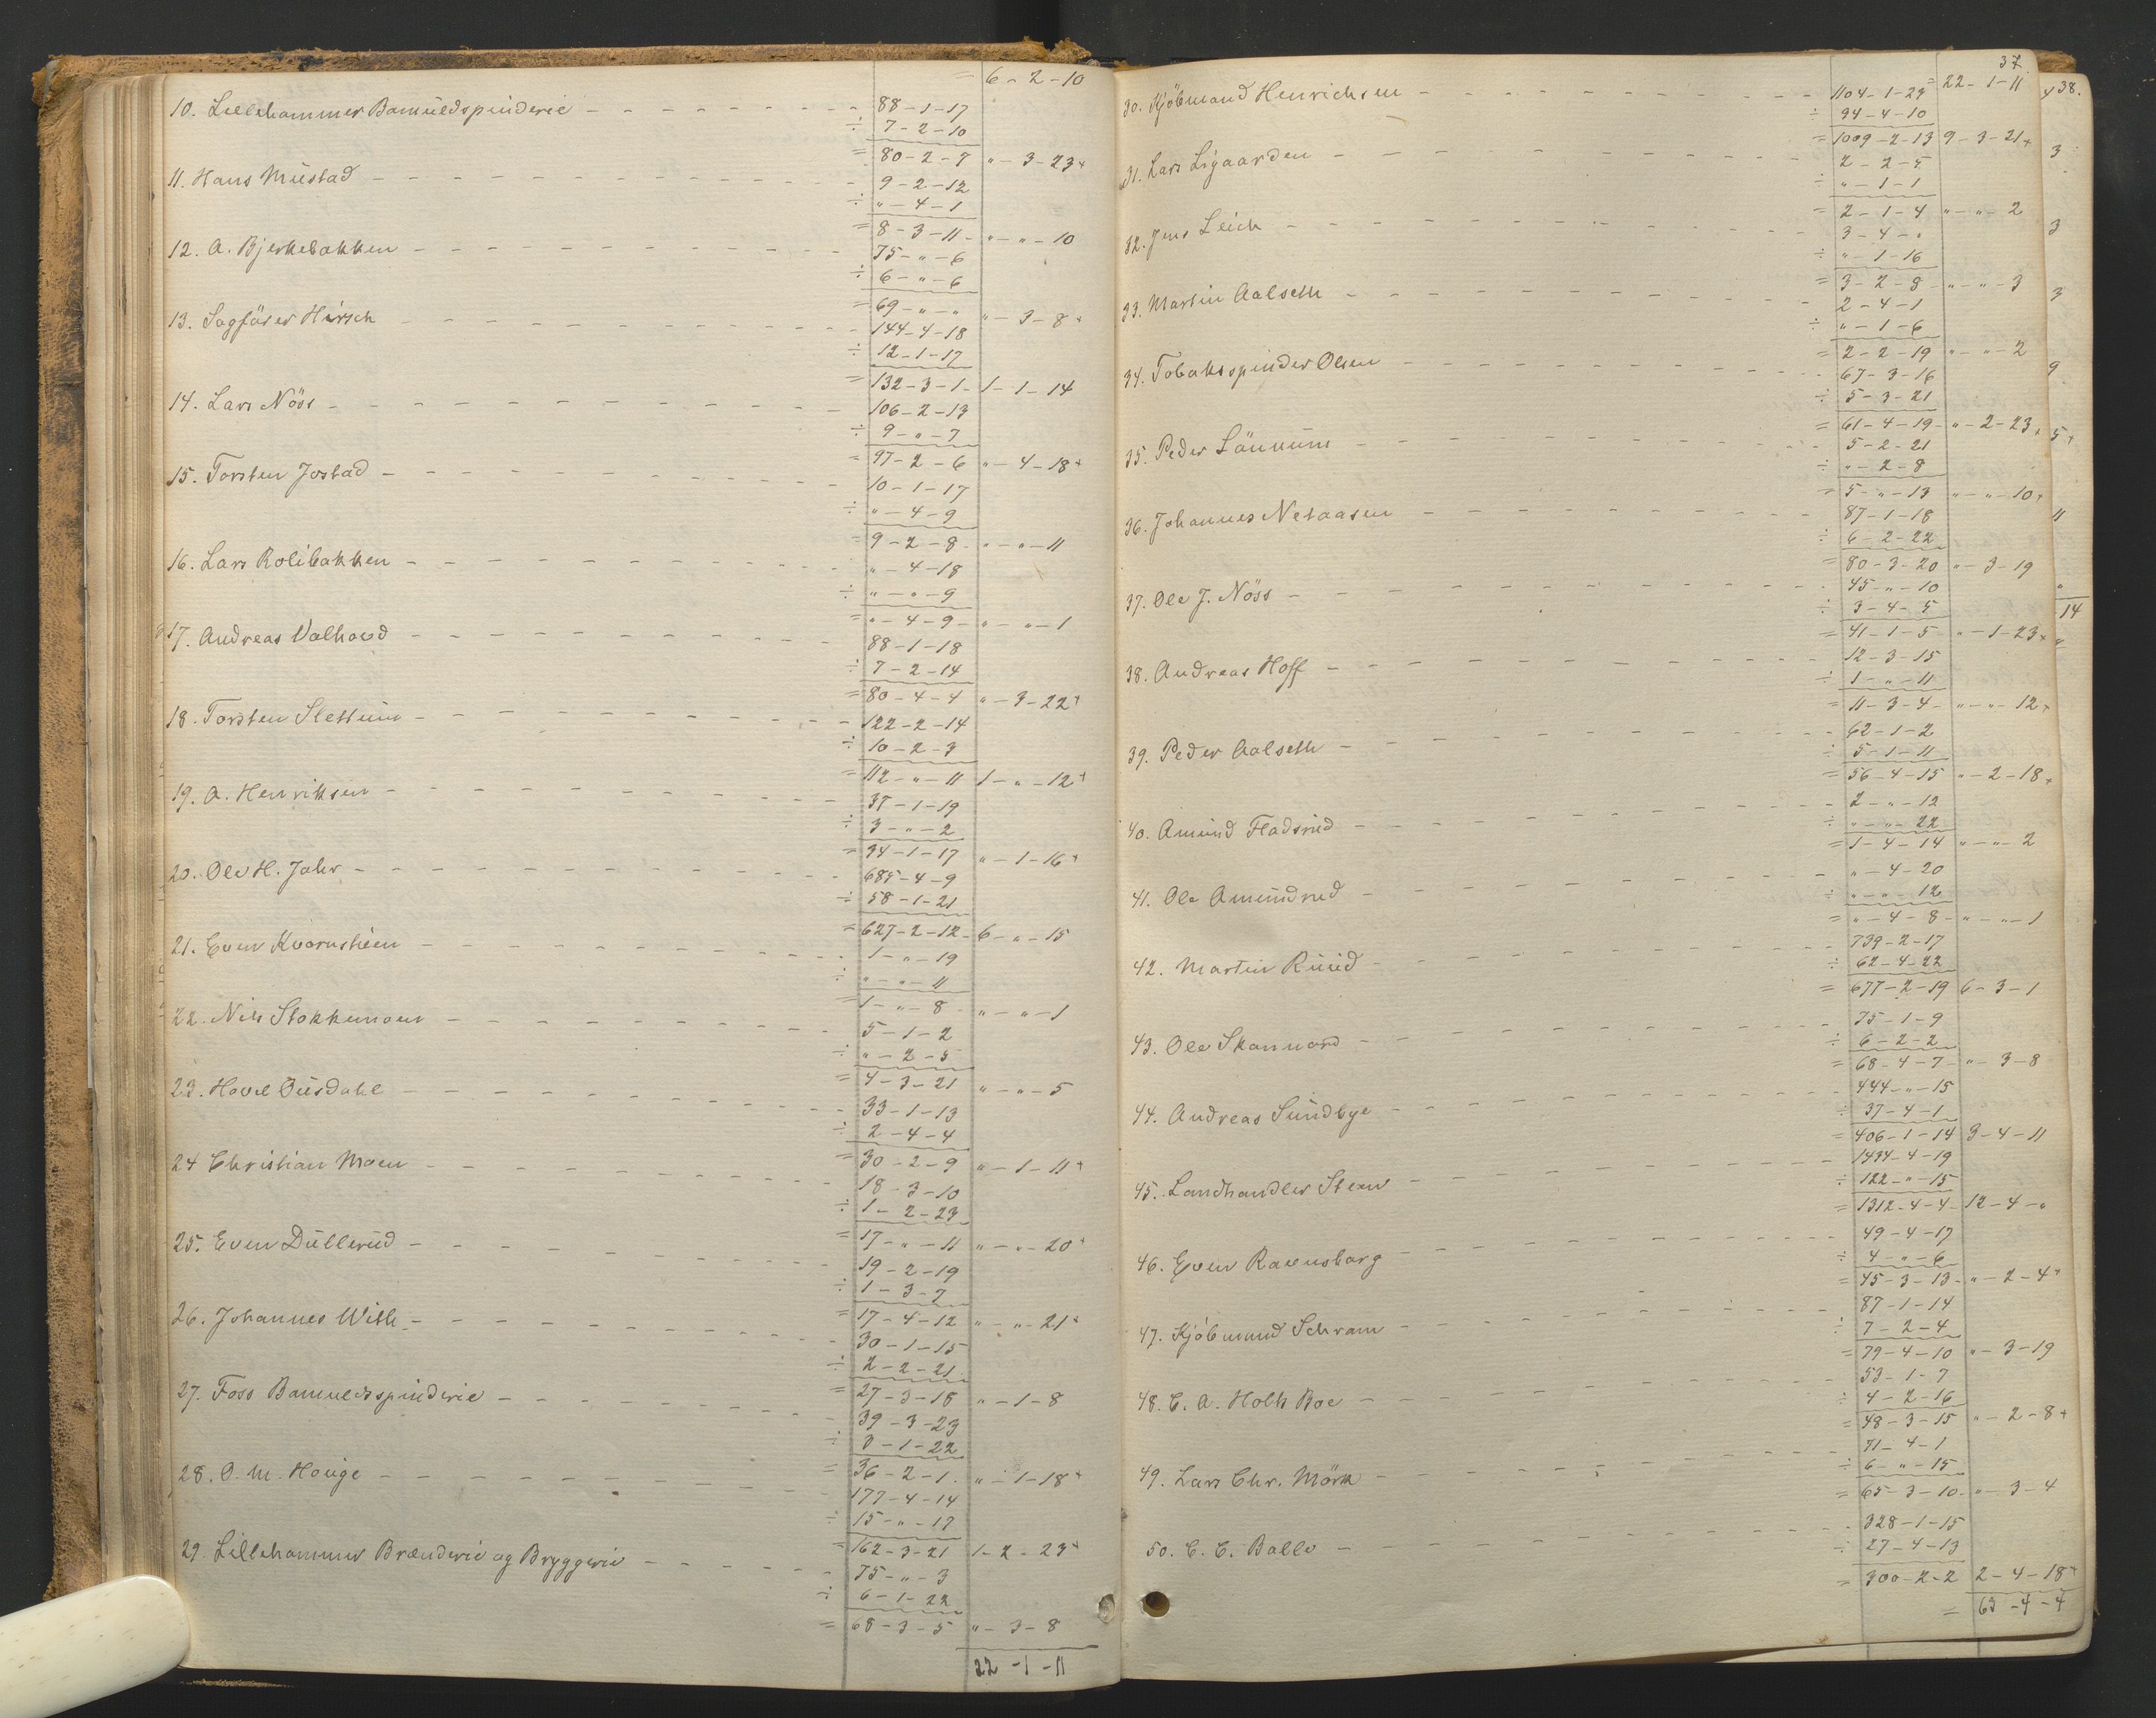 = 6 - 2 - 10
10. Lillehammer Bomuldspinderie - - - 88 - 1 - 17
÷ 7 - 2 - 10
= 80 - 2 - 7 " - 3 - 23 +
11. Hans Mustad - - - 9 - 2 - 12
÷ " - 4 - 1
= 8 - 3 - 11 - " - " - 10
12. A. Bjerkebakken - - - 75 - " - 6
÷ 6 - " - 6
= 69 - " - " " - 3 - 8 +
13. Sagförer Hirsch - - - 144 - 4 - 18
÷ 12 - 1 - 17
= 132 - 3 - 1 - 1 - 1 - 14
14. Lars Nöss - - - 106 - 2 - 13
÷ 9 - " - 7
= 97 - 2 - 6 " - 4 - 18 +
15. Torsten Jostad - - - 10 - 1 - 17
÷ " - 4 - 9
= 9 - 2 - 8 - " - " - 11
16. Lars Rolibakken - - - " - 4 - 18
÷ " - " - 9
= " - 4 - 9 - " - " - 1
17. Andreas Valhovd - - - 88 - 1 - 18
÷ 7 - 2 - 14
= 80 - 4 - 4 " - 3 - 22 +
18. Torsten Slettum - - - 122 - 2 - 14
÷ 10 - 2 - 3
= 112 - " - 11 1 - " - 12 +
19. A. Henriksen - - - 37 - 1 - 19
÷ 3 - " - 2
= 34 - 1 - 17 " - 1 - 16 +
20. Ole H. Jahr - - - 685 - 4 - 9
÷ 58 - 1 - 21
= 627 - 2 - 12 - 6 - " - 15
21. Even Kvernstuen - - - 1 - " - 19
÷ " - " - 11
= 1 - " - 8 - " - " - 1
22. Nils - - - 5 - 1 - 2
÷ " - 2 - 5
= 4 - 3 - 21 " - " - 5
23. Hovel Ousdahl - - - 33 - 1 - 13
÷ 2 - 4 - 4
= 30 - 2 - 9 " - 1 - 11 +
24 Christian Moen - - - 18 - 3 - 10
÷ 1 - 2 - 23
= 17 - " - 11 " - " - 20 +
25. Even Dullerud - - - 19 - 2 - 19
÷ 1 - 3 - 7
= 17 - 4 - 12 " - " - 21 +
26. Johannes Wilh - - - 30 - 1 - 15
÷ 2 - 2 - 21
= 27 - 3 - 18 " - 1 - 8
27. Foss Bomuldsspinderie - - - 39 - 3 - 23
÷ 3 - 1 - 22
= 36 - 2 - 1 . " - 1 - 18 +
28. O. M. Hauge - - - 177 - 4 - 14
÷ 15 - " - 17
= 162 - 3 - 21 1 - 2 - 23 +
29. Lillehammer Brænderie og Bryggerie - - - 75 - " - 3
÷ 6 - 1 - 22
= 68 - 3 - 5 " - 3 - 8
22 - 1 - 11
37.
= 22 - 1 - 11
30. Kjöbmand Henrichsen - - - 1104 - 1 - 29
÷ 94 - 4 - 10
= 1009 - 2 - 13 9 - 3 - 21 +
31. Lars Ligaarden - - - 2 - 2 - 5
÷ " - 1 - 1
= 2 - 1 - 4 " - " - 2
32. Jens Leich - - - 3 - 4 - "
÷ " - 1 - 16
= 3 - 2 - 8 - " - " - 3
33. Martin Aalseth - - - 2 - 4 - 1
÷ " - 1 - 6
= 2 - 2 - 19 " - " - 2
34. Tobaksspinder Olsen - - - 67 - 3 - 16
÷ 5 - 3 - 21
= 61 - 4 - 19 - " - 2 - 23 +
35. Peder Lönnum - - - 5 - 2 - 21
÷ " - 2 - 8
= 5 - " - 13 " - " - 10 +
36. Johannes Netaasen - - - 87 - 1 - 18
÷ 6 - 2 - 22
= 80 - 3 - 20 " - 3 - 19
37. Ole J. Nöss - - - 45 - " - 10
÷ 3 - 4 - 5
= 41 - 1 - 5 - " - 1 - 23 +
38. Andreas Hoff - - - 12 - 3 - 15
÷ 1 - " - 11
= 11 - 3 - 4 - " - " - 12 +
39. Peder Aalseth - - - 62 - 1 - 2
÷ 5 - 1 - 11
= 56 - 4 - 15 " - 2 - 18 +
40. Amund Fladsrud - - - 2 - " - 12
÷ " - " - 22
= 1 - 4 - 14 " - " - 2
41. Ole Amundrud - - - " - 4 - 20
÷ " - " - 12
= " - 4 - 8 - " - " - 1
42. Martin Ruud - - - 739 - 2 - 17
÷ 62 - 4 - 22
= 677 - 2 - 19 6 - 3 - 1
43. Ole Skannord - - - 75 - 1 - 9
÷ 6 - 2 - 2
= 68 - 4 - 7 - " - 3 - 8
44. Andreas Sundbye - - - 444 - " - 15
÷ 37 - 4 - 1
= 406 - 1 - 14 3 - 4 - 11
45. Landhandler Steen - - - 1434 - 4 - 19
÷ 122 - " - 15
= 1312 - 4 - 4 - 12 - 4 - "
46. Even Ravnsborg - - - 49 - 4 - 17
÷ 4 - " - 6
= 45 - 3 - 13 - " - 2 - 4 +
47. Kjöbmand Schram - - - 87 - 1 - 14
÷ 7 - 2 - 4
= 79 - 4 - 10 " - 3 - 19
48. C. A. Holh Boe - - - 53 - 1 - 7
÷ 4 - 2 - 16
= 48 - 3 - 15 " - 2 - 8 +
49. Lars Chr. Mörk - - - 71 - 4 - 1
÷ 6 - " - 15
= 65 - 3 - 10 - " - 3 - 4
50. C. C. Balle - - - 328 - 1 - 15
÷ 27 - 4 - 13
= 300 - 2 - 2 2 - 4 - 18 +
= 63 - 4 - 4
38.
4
3
3
3
9
5 +
11
"
14